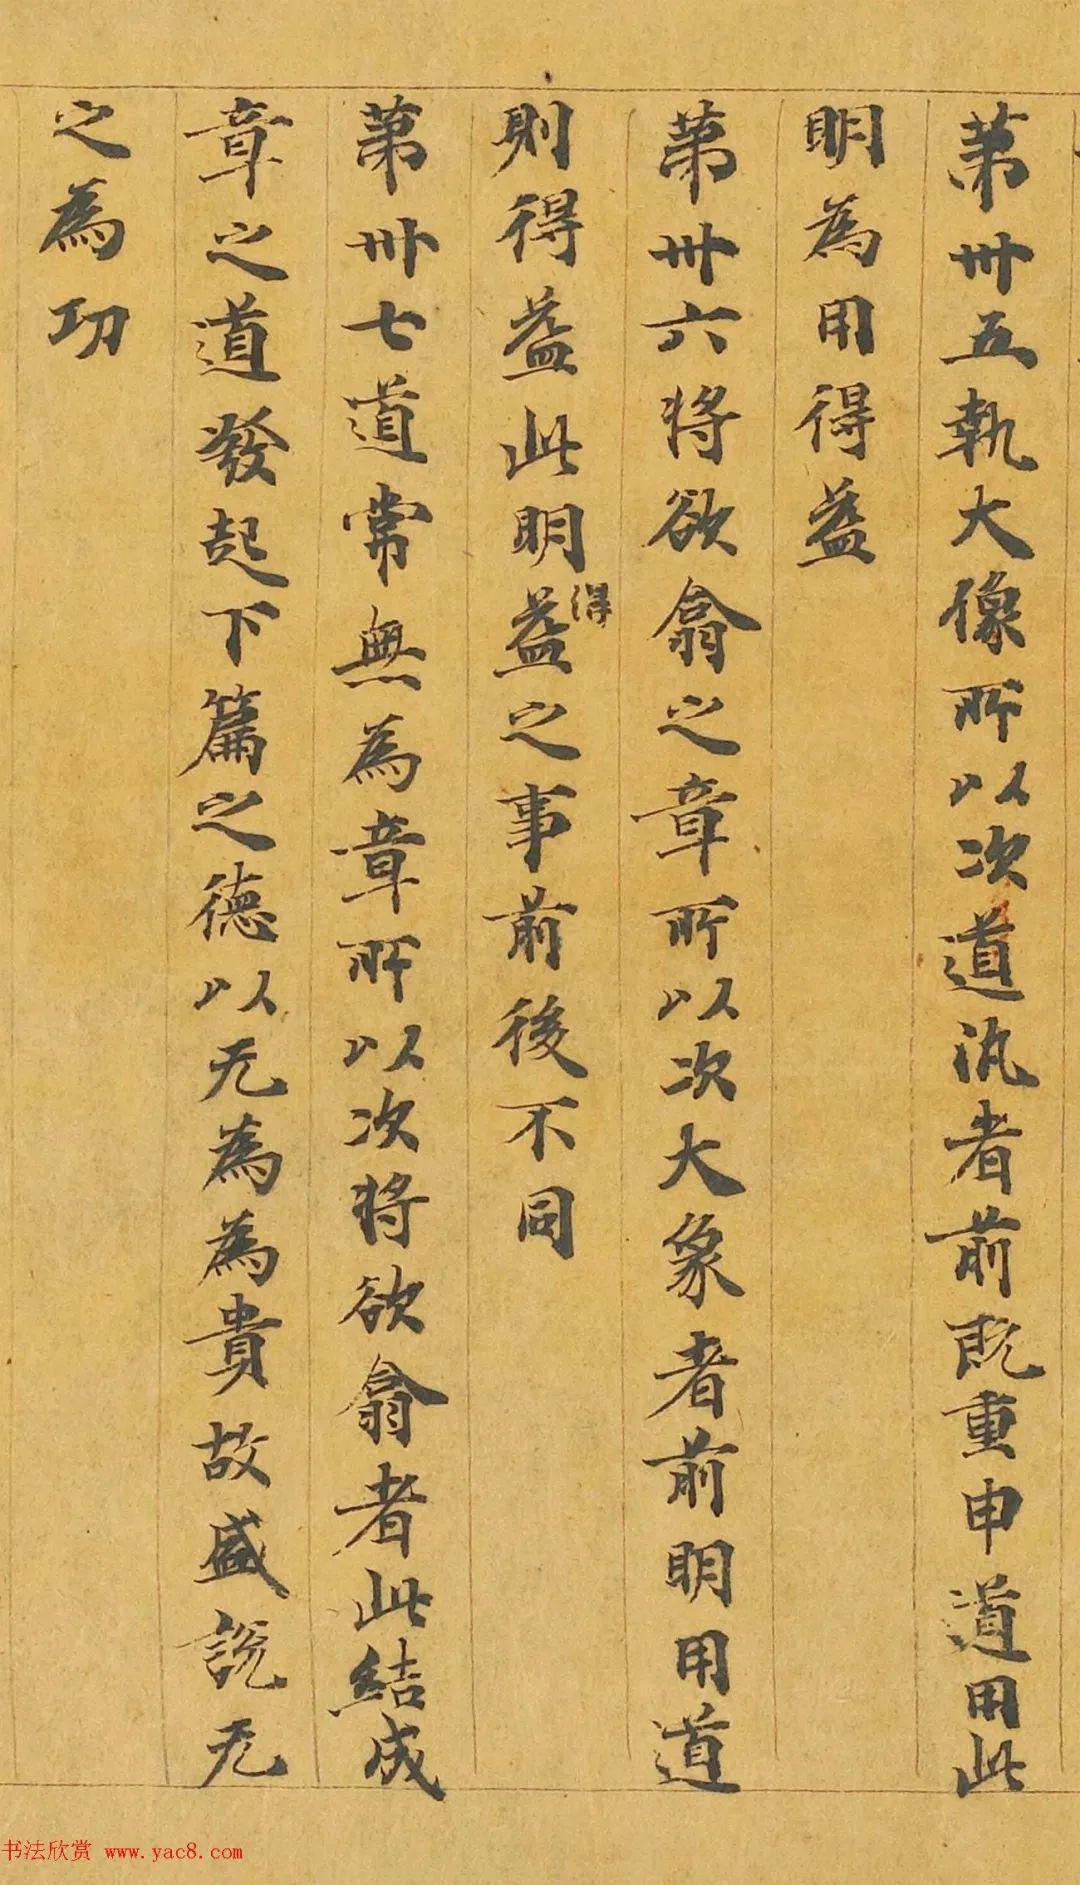 第卅五執大像所以次道汎者前既重申道用此
明為用得益
第卅六将欲翕之章所以次大象者前明用道
則得益此明益得之事前後不同
第卅七道常無為章所以次将欲翕者此結成
章之道發起下篇之德以无為為貴故盛說无
之為功
书法欣赏 www.yac8.com